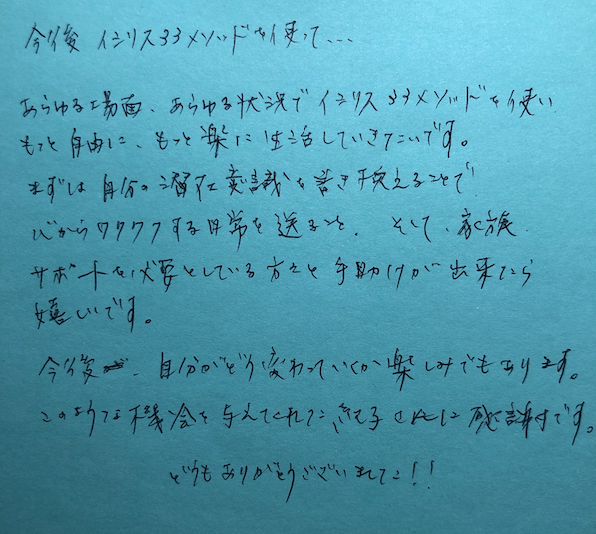 今後 イシリス33メソッドを使って...
あらゆる場面、あらゆる状況でイシリス33メソッドを使い
もっと自由に、もっと楽に生活していきたいです。
まずは自分の潜在意識を書き換えることで
心からワクワクする日常を送ること、そして、家族
サポートを必要としている方々を手助けが出来たら
嬉しいです。
今後、自分がどう変わっていくか楽しみでもあります。
このような機会を与えてくれた、さんに感謝です。
どうもありがとうございました!!